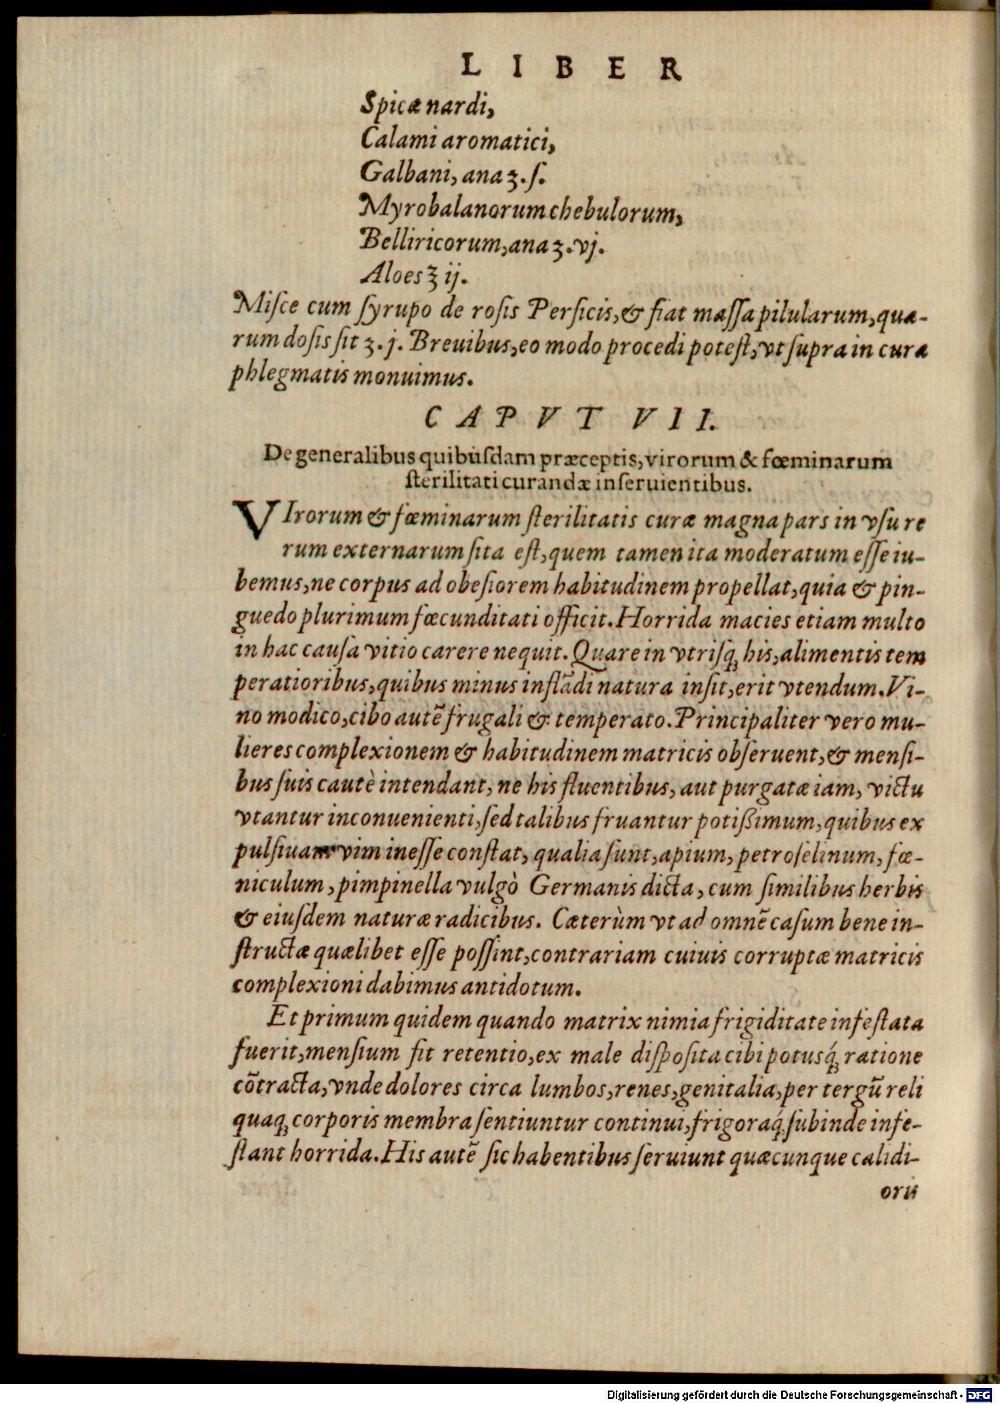 LIBER
Spicæ nardi,
Calami aromatici,
Galbani, ana ʒ. ſ.
Myrobalanorum chebulorum,
Belliricorum, ana ʒ. vj.
Aloes ʒ ij.
Miſce cum ſyrupo de roſis Perſicis, & fiat maſſa pilularum, qua-
rum doſis ſit ʒ. j. Breuibus, eo modo procedi poteſt, vt ſupra in cura
phlegmatis monuimus.
CAPVT VII.
De generalibus quibuſdam præceptis, virorum & fœminarum
ſterilitati curandæ inſeruientibus.
VIrorum & fœminarum ſterilitatis curæ magna pars in vſu re
rum externarum ſita eſt, quem tamen ita moderatum eſſe iu-
bemus, ne corpus ad obeſiorem habitudinem propellat, quia & pin-
guedo plurimum fœcunditati officit. Horrida macies etiam multo
in hac cauſa vitio carere nequit. Quare in vtriſq; his, alimentis tem
peratioribus, quibus minus inflādi natura inſit, erit vtendum. Vi-
no modico, cibo autē frugali & temperato. Principaliter vero mu-
lieres complexionem & habitudinem matricis obſeruent, & menſi-
bus ſuis cautè intendant, ne his fluentibus, aut purgatæ iam, victu
vtantur inconuenienti, ſed talibus fruantur potiſsimum, quibus ex
pulſiuam vim ineſſe conſtat, qualia ſunt, apium, petroſelinum, fœ-
niculum, pimpinella vulgò Germanis dicta, cum ſimilibus herbis
& eiuſdem naturæ radicibus. Cæterùm vt ad omnē caſum bene in-
ſtructæ quælibet eſſe poſſint, contrariam cuiuis corruptæ matricis
complexioni dabimus antidotum.
Et primum quidem quando matrix nimia frigiditate infeſtata
fuerit, menſium fit retentio, ex male diſpoſita cibi potusq́; ratione
cōtracta, vnde dolores circa lumbos, renes, genitalia, per tergū reli
quaq; corporis membra ſentiuntur continui, frigoraq́; ſubinde infe-
ſtant horrida. His autē ſic habentibus ſeruiunt quæcunque calidi-
oris
Digitalisierung gefördert durch die Deutsche Forschungsgemeinschaft - DFG